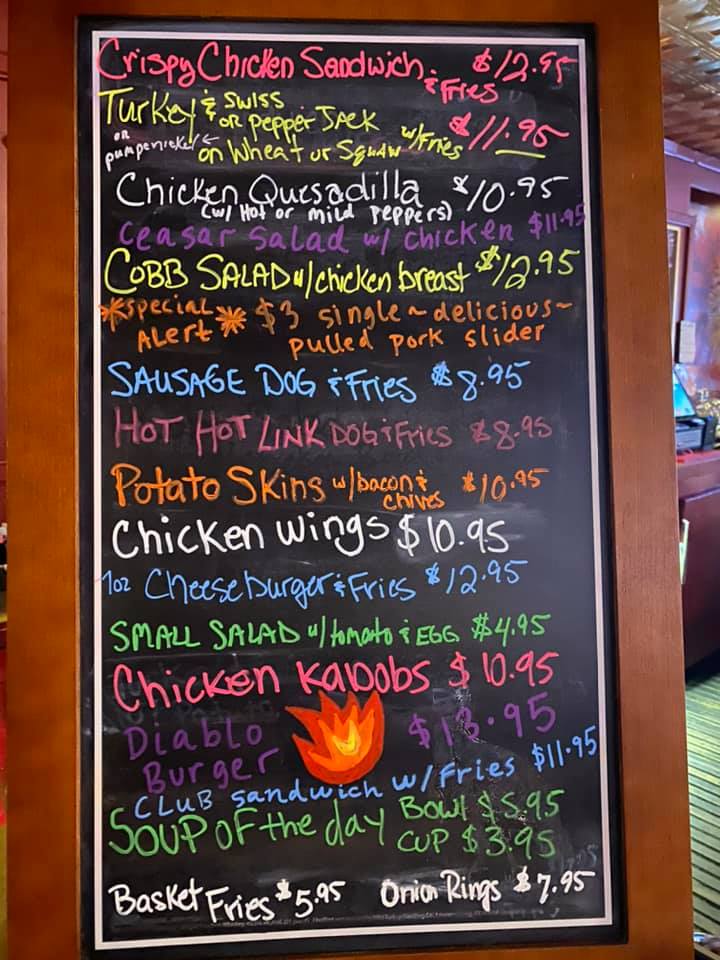 Crispy Chicken Sandwich & Fries $12.95
Turkey & Swiss or Pepper Jack
or pumpernickel ← on Wheat or Squaw w/Fries $11.95
Chicken Quesadilla $10.95
(w/ Hot or mild peppers)
Ceasar Salad w/ chicken $11.95
COBB SALAD w/chicken breast $12.95
*Special Alert* $3 single ~ delicious ~
pulled pork slider
SAUSAGE DOG & Fries $8.95
HOT HOT LINK DOG & Fries $8.95
Potato Skins w/bacon & chives $10.95
Chicken Wings $10.95
7oz Cheeseburger & Fries $12.95
SMALL SALAD w/tomato & EGG $4.95
Chicken Kabobs $10.95
Diablo Burger $13.95
CLUB sandwich w/Fries $11.95
SOUP OF the day Bowl $5.95
CUP $3.95
Basket Fries $5.95 Onion Rings $7.95